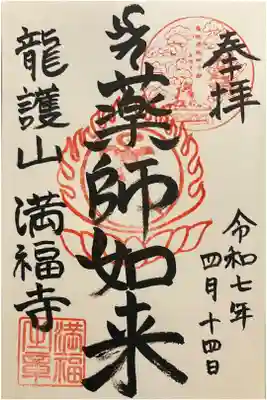 奉拝
令和七年
四月十四日
薬師如来
龍護山 満福寺
満福